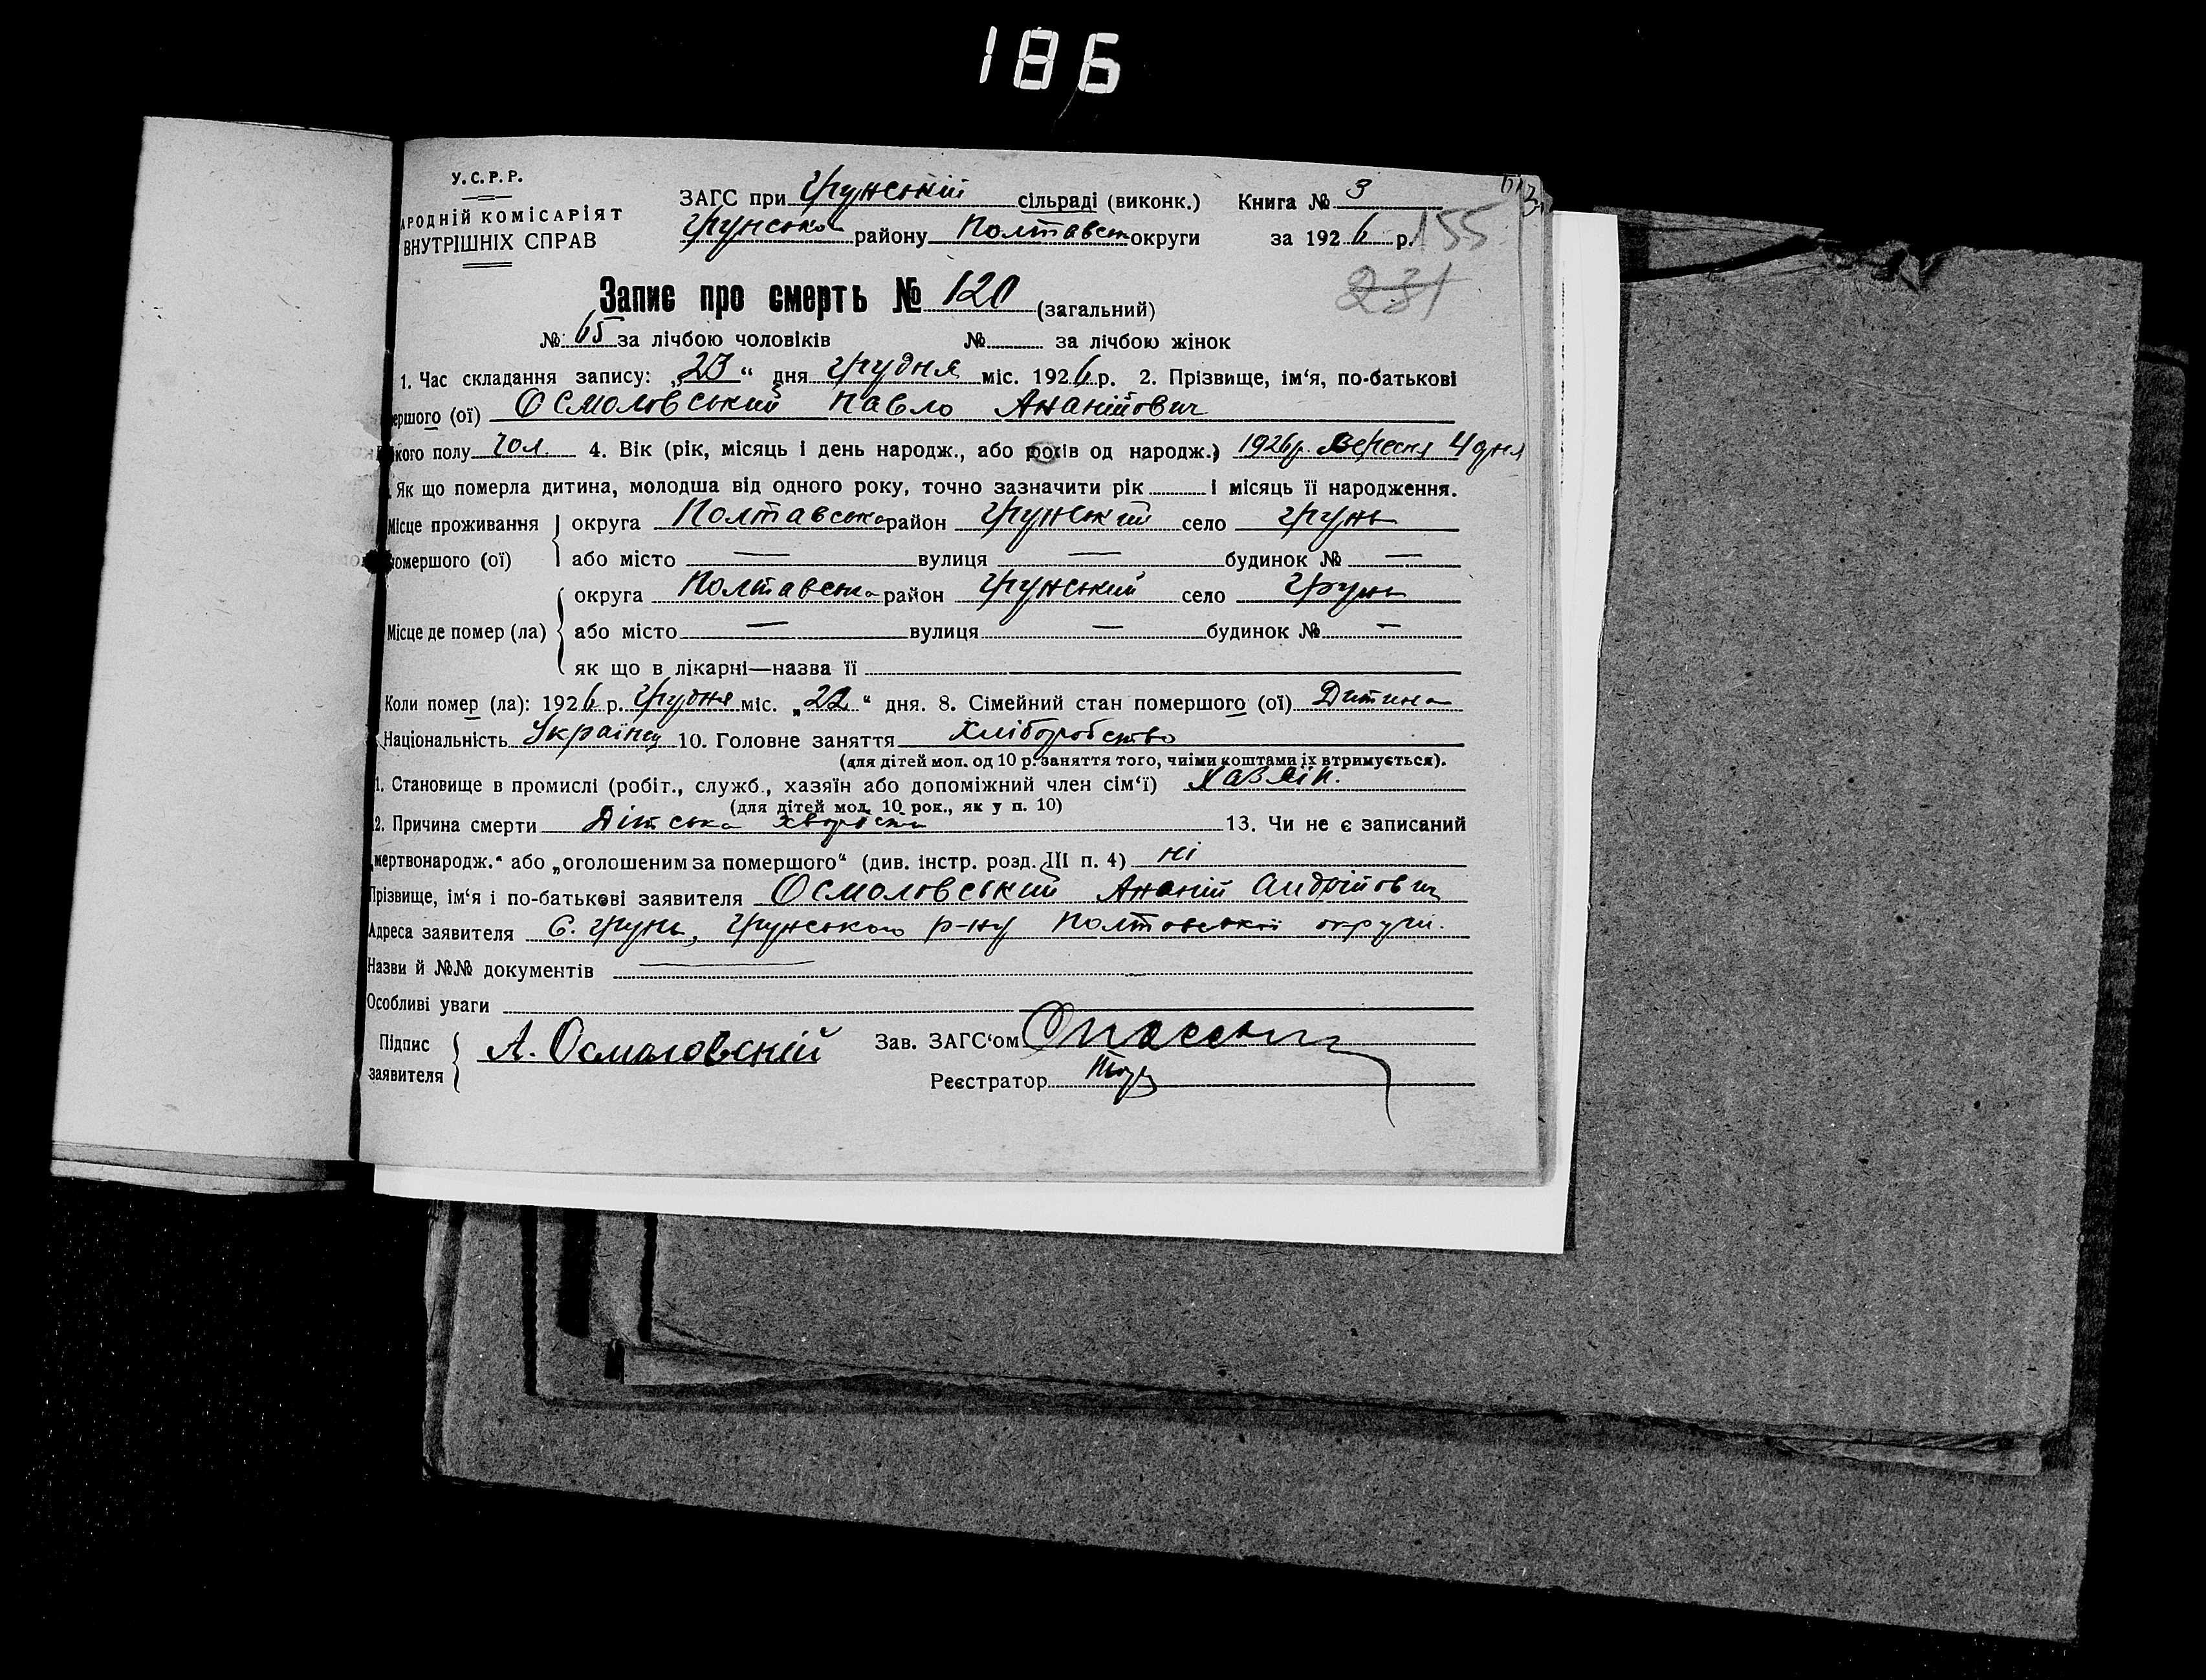 186
У.С.Р.Р.
АРОДНІЙ КОМІСАРІЯТ
ВНУТРІШНІХ СПРАВ
ЗАГС при Грунській сільраді (виконк.) Книга № 3
Грунського району Полтавськ округи за 1926 р. 155
231
Запис про смерть № 120 (загальний)
№ 65 за лічбою чоловіків № за лічбою жінок
1. Час складання запису: „23“ дня Грудня міс. 1926 р. 2. Прізвище, ім‘я, по-батькові
ершого (ої) Осмоловський Павло Ананійович
кого полу чол. 4. Вік (рік, місяць і день народж., або років од народж.) 1926 р. Вересня 4 дня
Як що померла дитина, молодша від одного року, точно зазначити рік і місяць її народження.
Місце проживання округа Полтавська район Грунський село Грунь
помершого (ої) або місто — вулиця — будинок № —
округа Полтавська район Грунський село Грунь
Місце де помер (ла) або місто — вулиця — будинок № —
як що в лікарні—назва її
Коли помер (ла): 1926 р. Грудня міс. „22“ дня. 8. Сімейний стан помершого (ої) Дитина
Національність Українец 10. Головне заняття Хліборобство
(для дітей мол. од 10 р. заняття того, чиїми коштами їх втримується).
1. Становище в промислі (робіт., служб., хазяїн або допоміжний член сім‘ї) Хазяїн.
(для дітей мол. 10 рок., як у п. 10)
2. Причина смерти Дітська хворость 13. Чи не є записаний
„мертвонародж.“ або „оголошеним за помершого“ (див. інстр. розд. III п. 4) ні
Прізвище, ім‘я і по-батькові заявителя Осмоловський Ананій Андрійович
Адреса заявителя С. Грунь, Грунського р-ну Полтавської округи.
Назви й №№ документів
Особливі уваги
Підпис заявителя А. Осмоловскій Зав. ЗАГС‘ом
Реєстратор